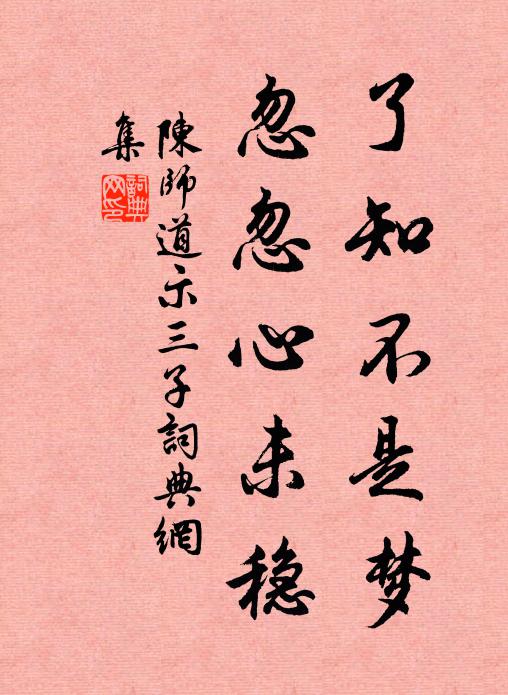 了知不是梦
忽忽心未稳
陳師道示三子詞典網
集
詞典网印